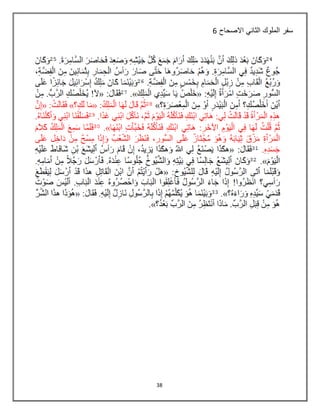 سفر الملوك الثاني الاصحاح 6
24وَكَانَ بَعْدَ ذلِكَ أَنَّ بَنْهَدَدَ مَلِكَ أَرَامَ جَمَعَ كُلَّ جَيْشِهِ وَصَعِدَ فَحَاصَرَ السَّامِرَةَ. 25وَكَانَ
جُوعٌ شَدِيدٌ فِي السَّامِرَةِ. وَهُمْ حَاصَرُوهَا حَتَّى صَارَ رَأْسُ الْحِمَارِ بِثَمَانِينَ مِنَ الْفِضَّةِ،
وَرُبْعُ الْقَابِ مِنْ زِبْلِ الْحَمَامِ بِخَمْسٍ مِنَ الْفِضَّةِ. 26وَبَيْنَمَا كَانَ مَلِكُ إِسْرَائِيلَ جَائِزًا عَلَى
السُّورِ صَرَخَتِ امْرَأَةٌ إِلَيْهِ: «خَلِّصْ يَا سَيِّدِي الْمَلِكَ». 27فَقَالَ: «لاَ! يُخَلِّصْكِ الرَّبُّ. مِنْ
أَيْنَ أُخَلِّصُكِ؟ أَمِنَ الْبَيْدَرِ أَوْ مِنَ الْمِعْصَرَةِ؟» 28ثُمَّ قَالَ لَهَا الْمَلِكُ: «مَا لَكِ؟» فَقَالَتْ: «إِنَّ
هذِهِ الْمَرْأَةَ قَدْ قَالَتْ لِي: هَاتِي ابْنَكِ فَنَأْكُلَهُ الْيَوْمَ ثُمَّ نَأْكُلَ ابْنِي غَدًا. 29فَسَلَقْنَا ابْنِي وَأَكَلْنَاهُ.
ثُمَّ قُلْتُ لَهَا فِي الْيَوْمِ الآخَرِ: هَاتِي ابْنَكِ فَنَأْكُلَهُ فَخَبَّأَتِ ابْنَهَا». 30فَلَمَّا سَمِعَ الْمَلِكُ كَلاَمَ
الْمَرْأَةِ مَزَّقَ ثِيَابَهُ وَهُوَ مُجْتَازٌ عَلَى السُّورِ، فَنَظَرَ الشَّعْبُ وَإِذَا مِسْحٌ مِنْ دَاخِل عَلَى
جَسَدِهِ. 31فَقَالَ: «هكَذَا يَصْنَعُ لِيَ اللهُ وَهكَذَا يَزِيدُ، إِنْ قَامَ رَأْسُ أَلِيشَعَ بْنِ شَافَاطَ عَلَيْهِ
الْيَوْمَ». 32وَكَانَ أَلِيشَعُ جَالِسًا فِي بَيْتِهِ وَالشُّيُوخُ جُلُوسًا عِنْدَهُ. فَأَرْسَلَ رَجُلاً مِنْ أَمَامِهِ.
وَقَبْلَمَا أَتَى الرَّسُولُ إِلَيْهِ قَالَ لِلشُّيُوخِ: «هَلْ رَأَيْتُمْ أَنَّ ابْنَ الْقَاتِلِ هذَا قَدْ أَرْسَلَ لِكَيْ يَقْطَعَ
رَأْسِي؟ انْظُرُوا! إِذَا جَاءَ الرَّسُولُ فَأَغْلِقُوا الْبَابَ وَاحْصُرُوهُ عِنْدَ الْبَابِ. أَلَيْسَ صَوْتُ
قَدَمَيْ سَيِّدِهِ وَرَاءَهُ؟». 33وَبَيْنَمَا هُوَ يُكَلِّمُهُمْ إِذَا بِالرَّسُولِ نَازِلٌ إِلَيْهِ. فَقَالَ: «هُوَذَا هذَا الشَّرُّ
هُوَ مِنْ قِبَلِ الرَّبِّ. مَاذَا أَنْتَظِرُ مِنَ الرَّبِّ بَعْدُ؟».
38